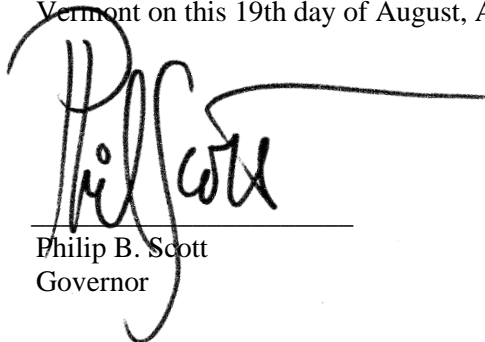 Vermont on this 19th day of August, A
Phil Scott
Philip B. Scott
Governor